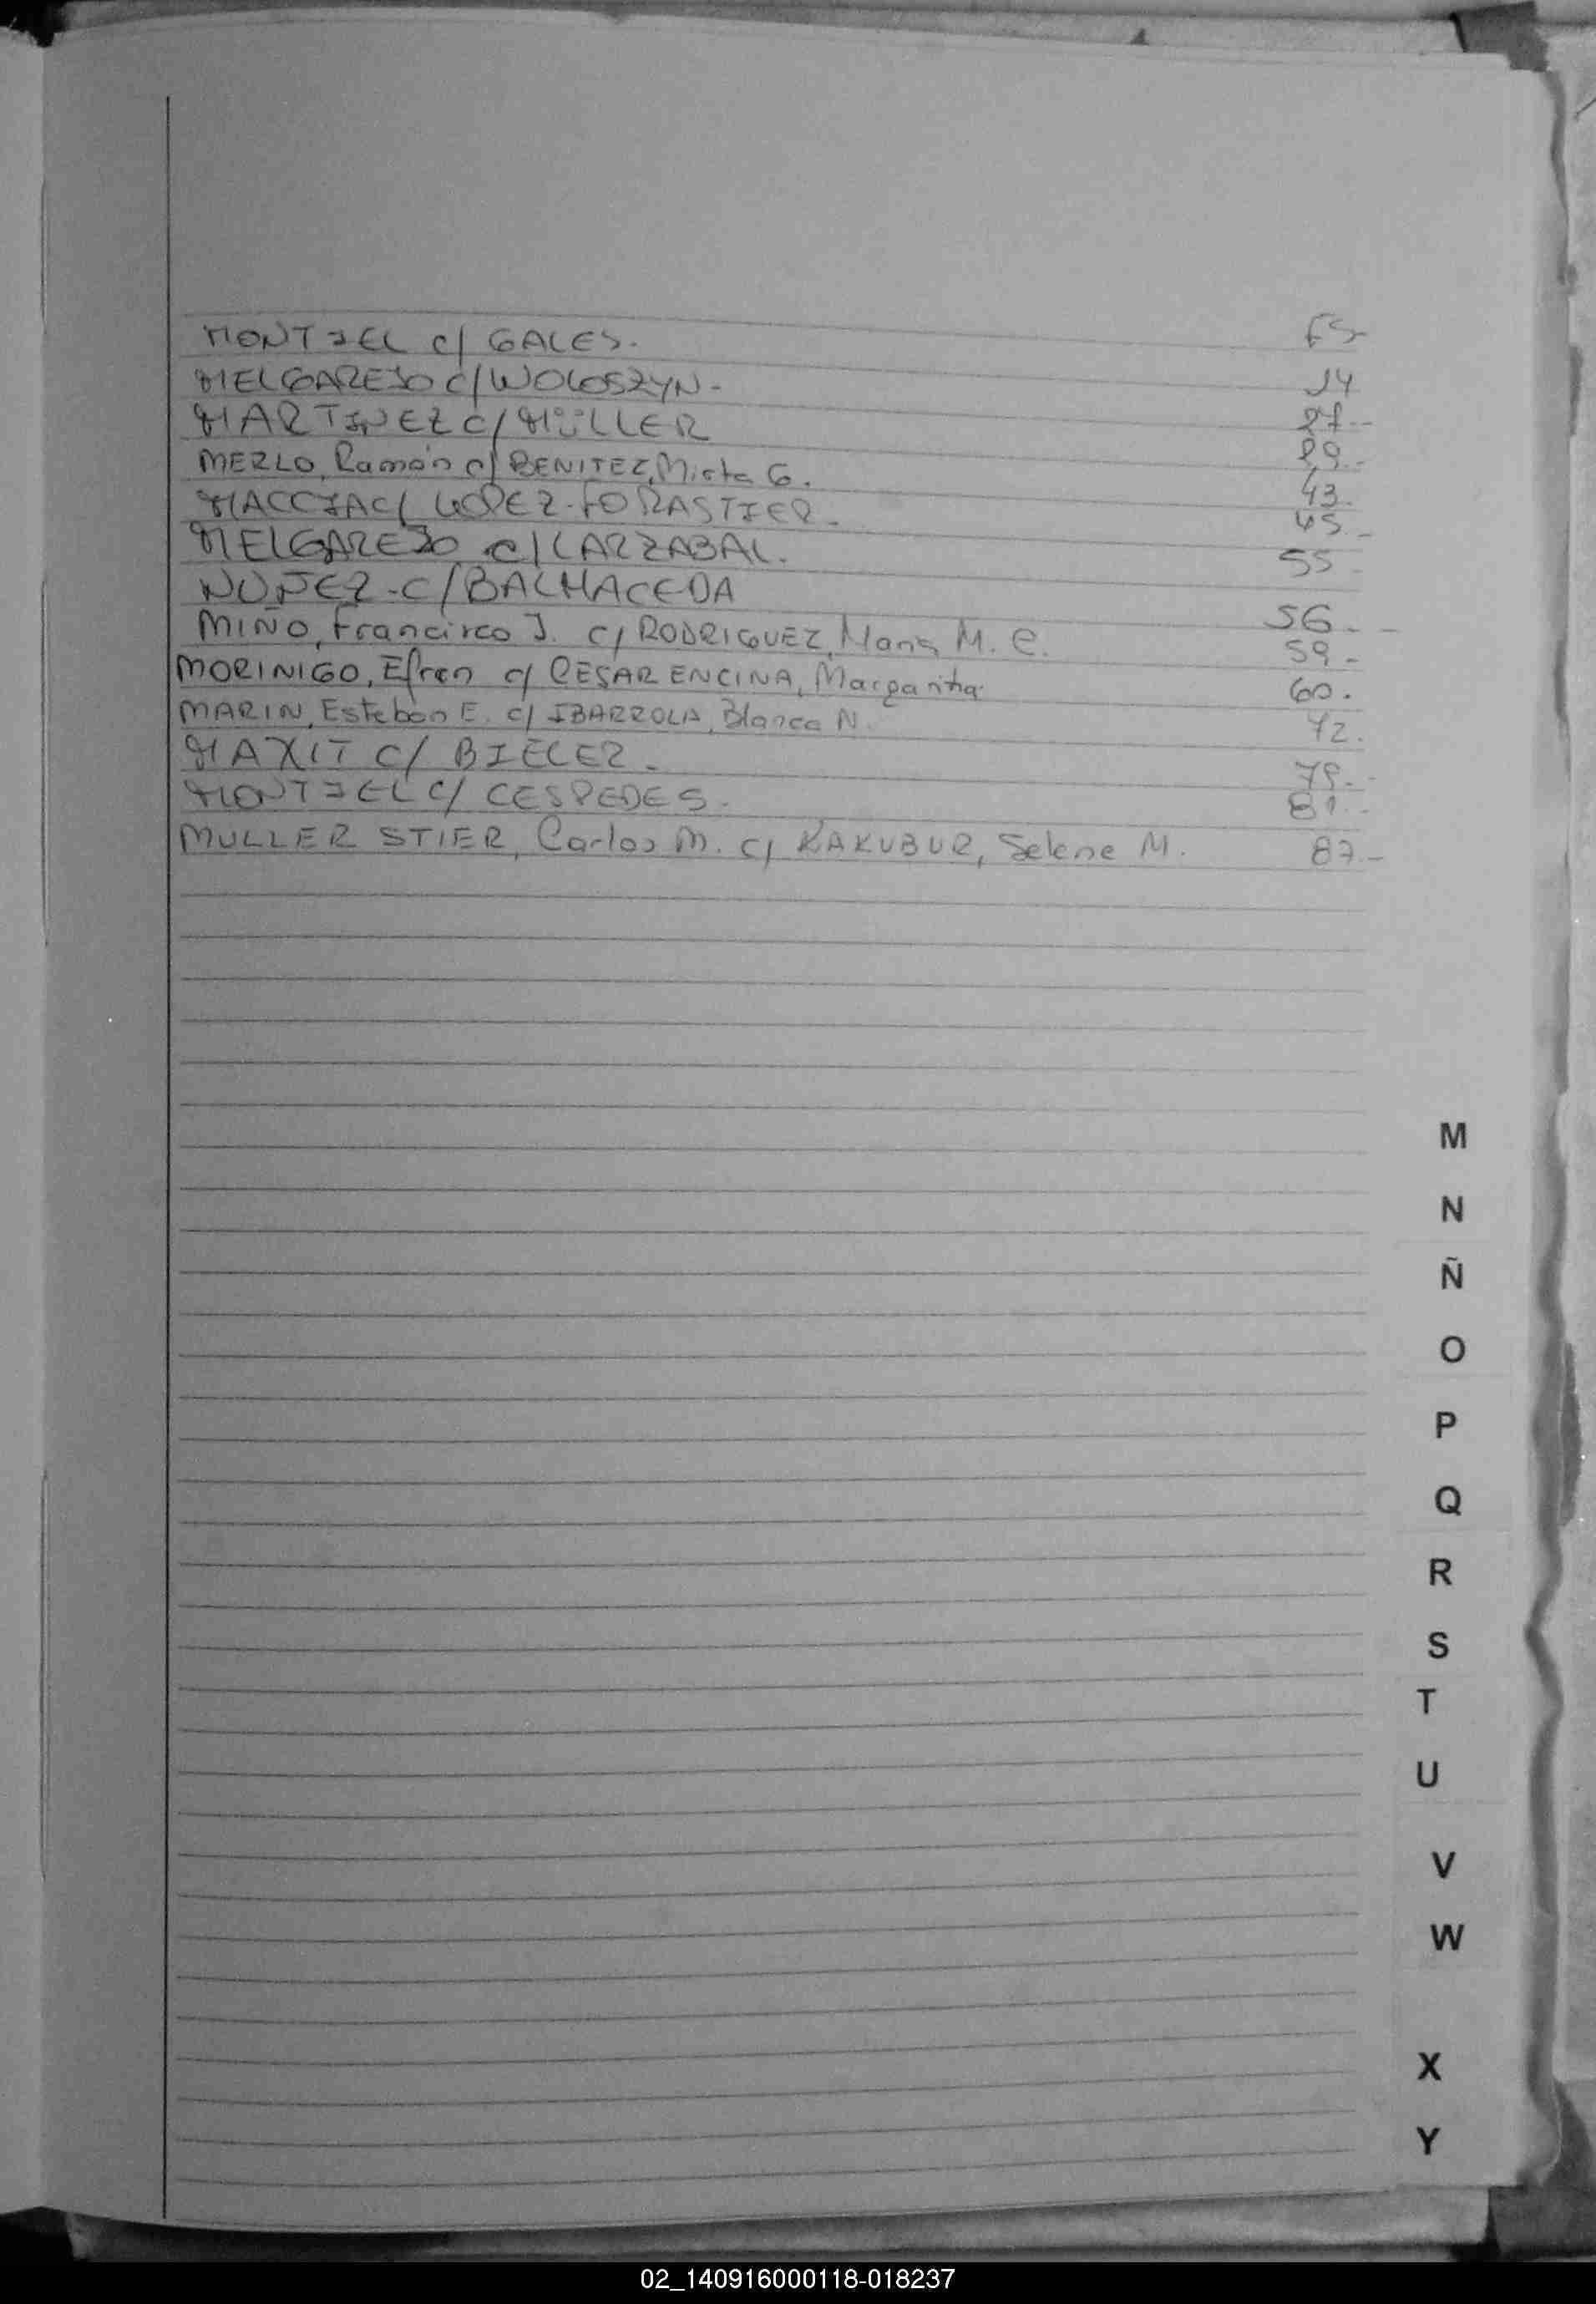 FS-
MONTIEL c/ GALES. 14
MELGAREJO c/ WOLOSZYN- 27.-
MARTINEZ c/ MÜLLER 29.-
MERLO, Ramón c/ BENITEZ, Mirta G. 43.
MACCIA c/ LOPEZ-FORASTIER. 45.-
MELGAREJO c/ LARZABAL. 55-
NUÑEZ-c/ BALMACEDA 56.-
MIÑO, Francisco J. c/ RODRIGUEZ, Maria M. C. 59-
MORINIGO, Efren c/ CESAR ENCINA, Margarita 60.
MARIN, Esteban E. c/ IBARROLA, Blanca N. 72.
MAXIT c/ BIELER. 79.-
MONTIEL c/ CESPEDES. 81.-
MULLER STIER, Carlos M. c/ KAKUBUR, Selene M. 87.-
M
N
Ñ
O
P
Q
R
S
T
U
V
W
X
Y
02_140916000118-018237